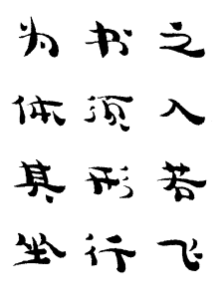 为书之
体须入
其形若
坐行飞